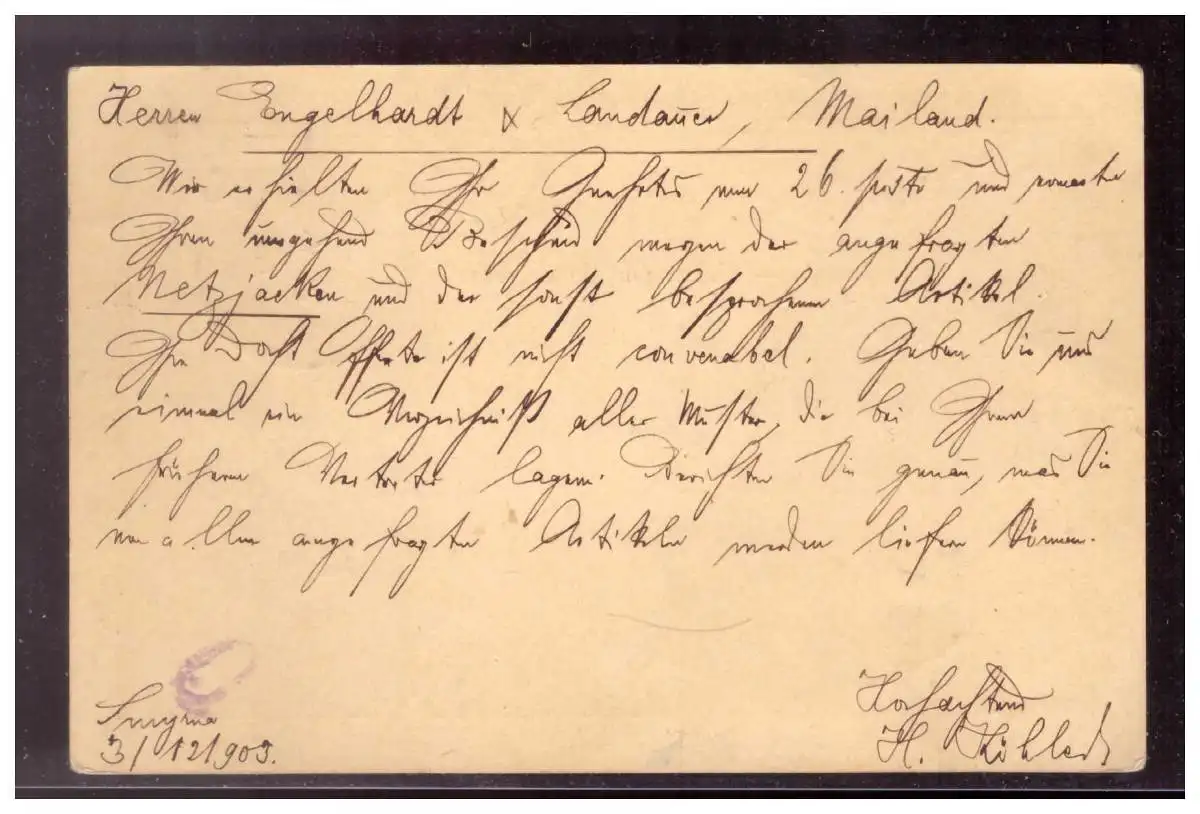 Herren Engelhardt & Landauer, Mailand.
Wir erhielten Ihr Geehrtes vom 26. psto und erwarten
Ihren umgehend Bescheid wegen der angefragten
Netzjacken und der sonst besprochenen Artikel.
Ihre Offerte ist nicht convenabel. Geben Sie uns
einmal ein Verzeichniß aller Muster, die bei Ihrem
früheren Vertreter lagen. Berichten Sie genau, was Sie
von allen angefragten Artikeln werden liefern können.
Hochachtend
Smyrna
3/12/903.
H. Köhler